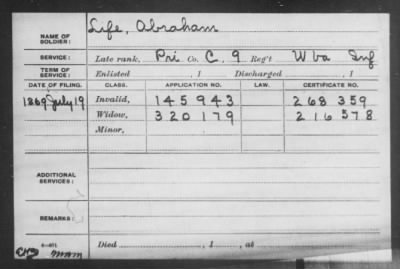 NAME OF SOLDIER: Life, Abraham
SERVICE: Late rank, Pri Co. C, 9 Reg't W Va Inf
TERM OF SERVICE: Enlisted , 1 Discharged , 1
DATE OF FILING. CLASS. APPLICATION NO. LAW. CERTIFICATE NO.
1869 July 19 Invalid, 145943 268359
Widow, 320179 216578
Minor,
ADDITIONAL SERVICES:
REMARKS:
Died , 1 , at